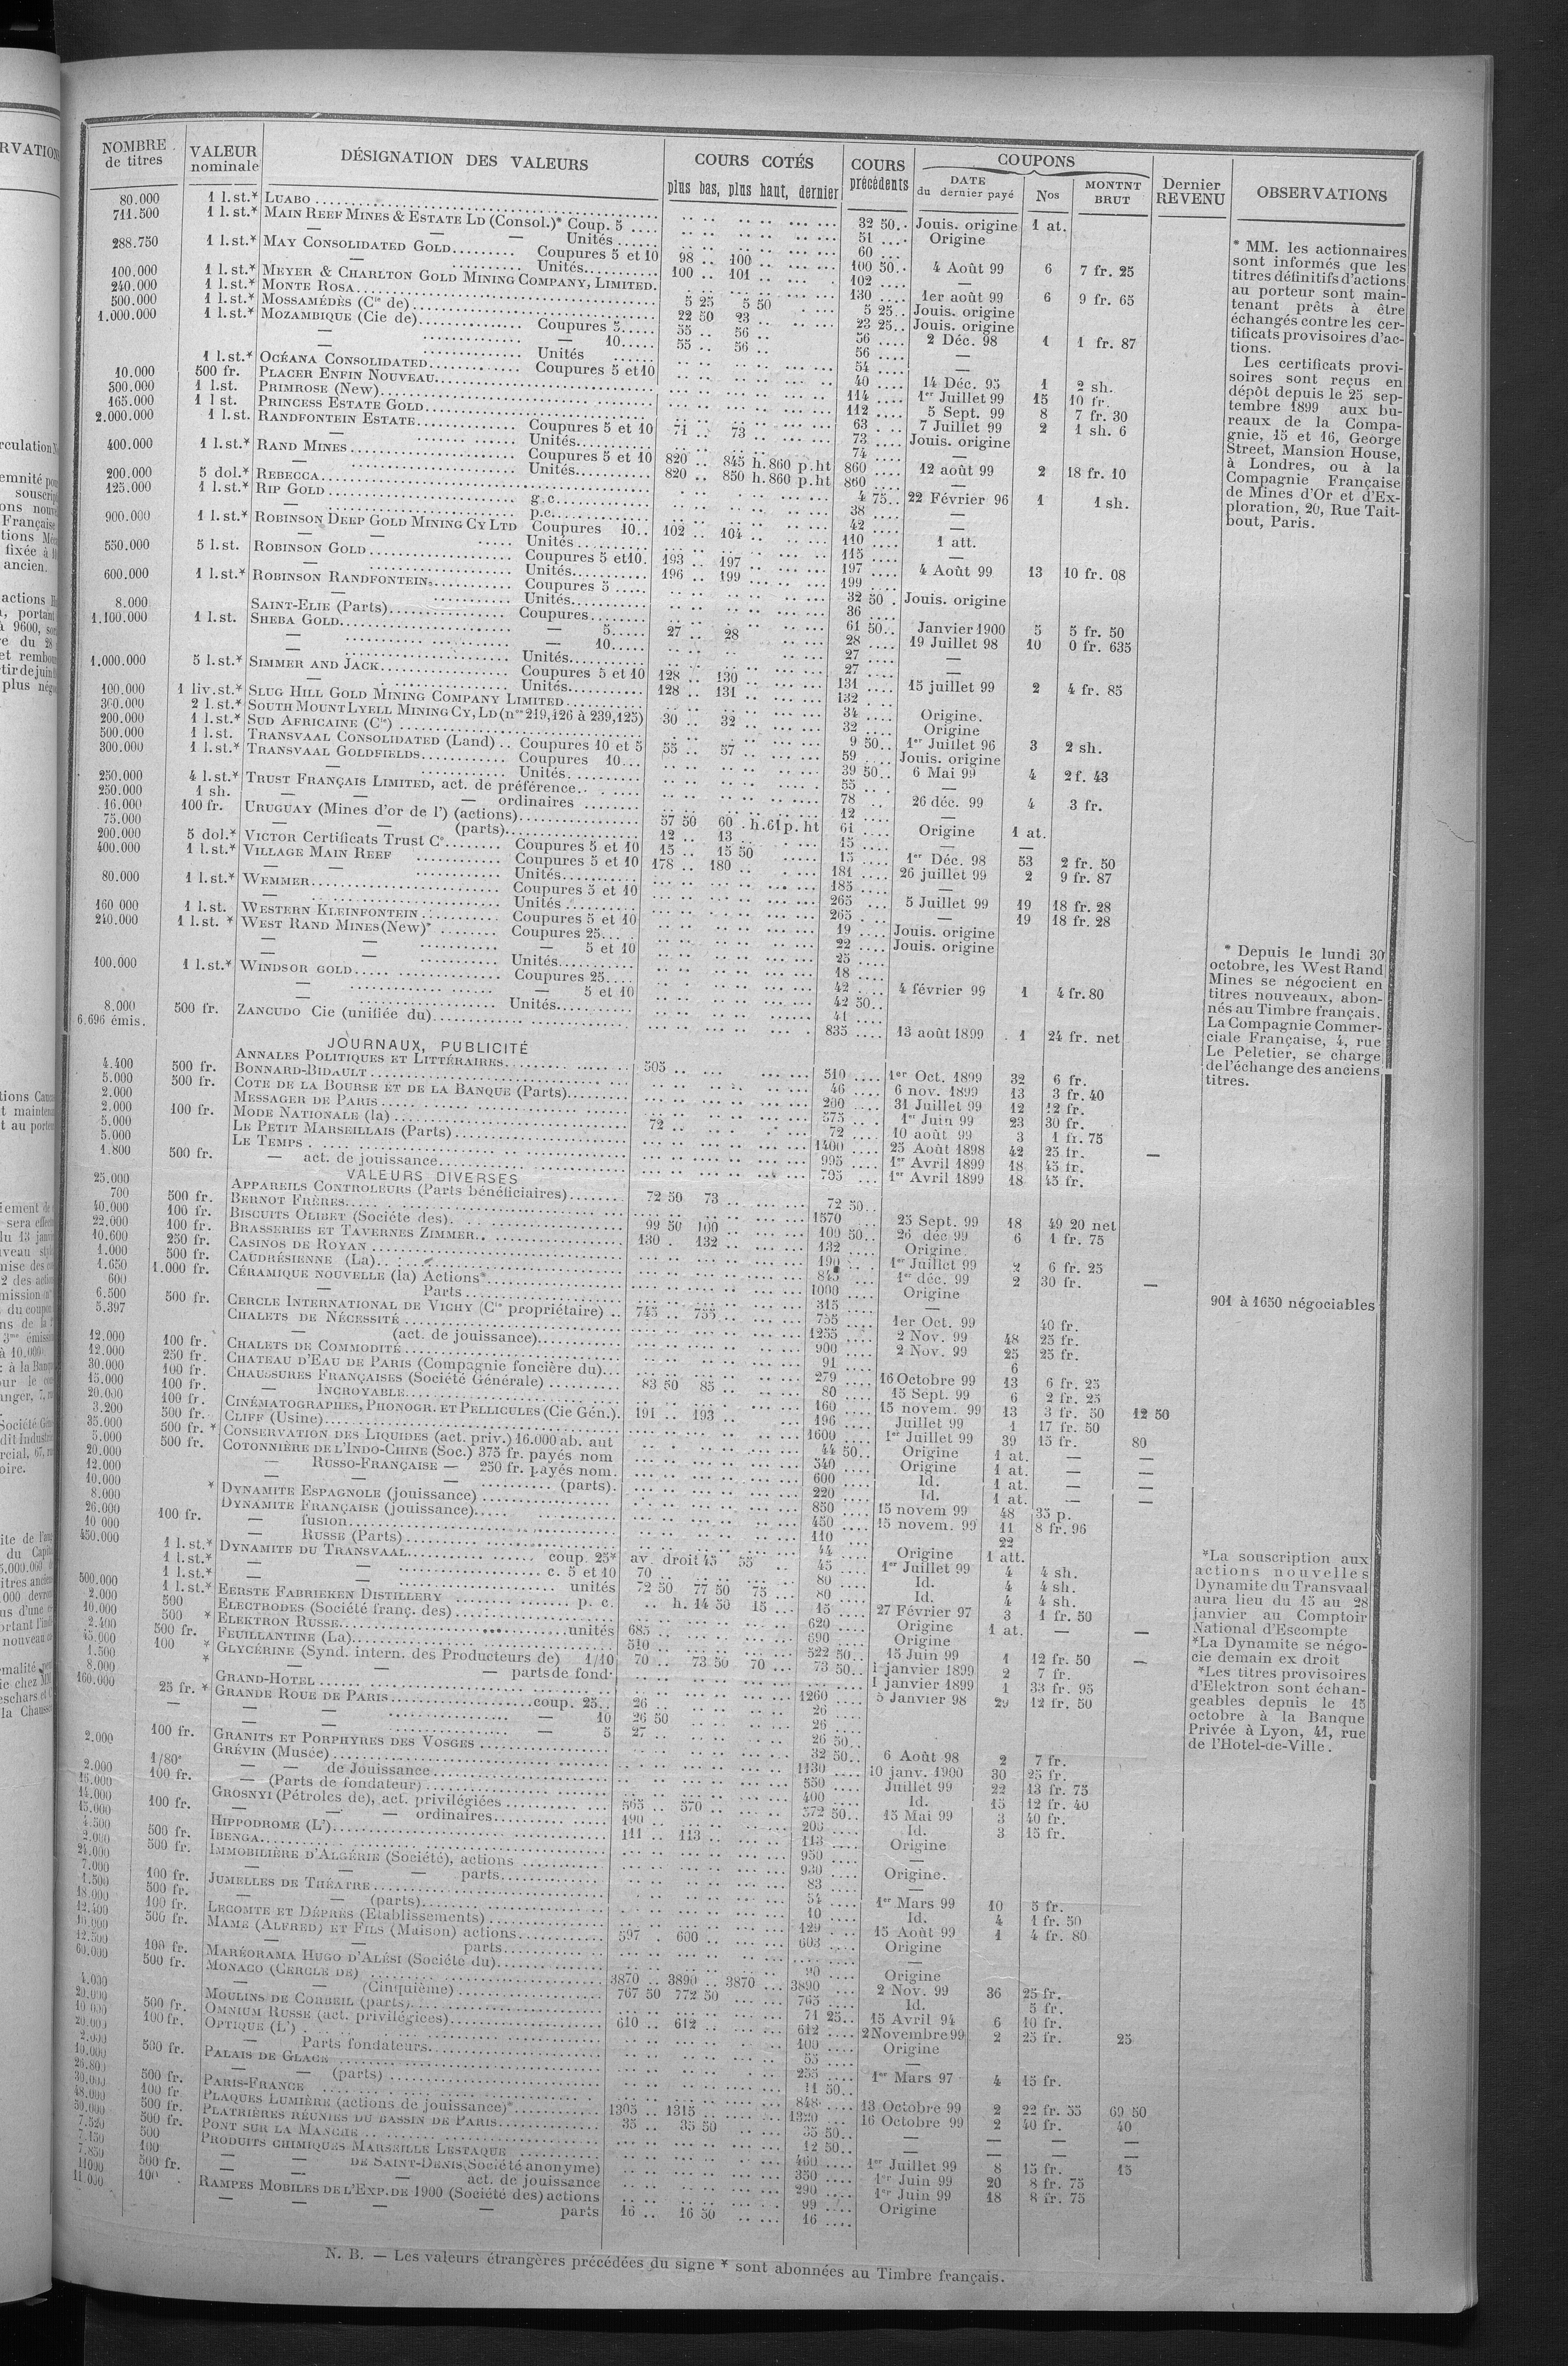 NOMBRE de titres | VALEUR nominale | DÉSIGNATION DES VALEURS | COURS COTÉS plus bas, plus haut, dernier | COURS précédents | COUPONS DATE du dernier payé | Nos | MONTNT BRUT | Dernier REVENU | OBSERVATIONS
80.000 1 l.st.* LUABO 32 50 Jouis. origine 1 at.
711.500 1 l.st.* MAIN REEF MINES & ESTATE LD (Consol.)* Coup. 5 51 Origine
— — Unités 60
288.750 1 l.st.* MAY CONSOLIDATED GOLD Coupures 5 et 10 98 100 100 50 4 Août 99 6 7 fr. 25
— Unités 100 101 102 —
100.000 1 l.st.* MEYER & CHARLTON GOLD MINING COMPANY, LIMITED. 130 1er août 99 6 9 fr. 65
240.000 1 l.st.* MONTE ROSA 5 25 Jouis. origine
500.000 1 l.st.* MOSSAMÉDÈS (Cie de) 5 25 5 50 23 25 Jouis. origine
1.000.000 1 l.st.* MOZAMBIQUE (Cie de) Coupures 5 22 50 23 56 2 Déc. 98 1 1 fr. 87
— — 10 55 56 56 —
— Unités 55 56 54 —
1 l.st.* OCÉANA CONSOLIDATED Coupures 5 et 10 40 14 Déc. 95 1 2 sh.
10.000 500 fr. PLACER ENFIN NOUVEAU 114 1er Juillet 99 15 10 fr.
300.000 1 l.st. PRIMROSE (New) 112 5 Sept. 99 8 7 fr. 30
165.000 1 l st. PRINCESS ESTATE GOLD 63 7 Juillet 99 2 1 sh. 6
2.000.000 1 l.st. RANDFONTEIN ESTATE Coupures 5 et 10 71 73 73 Jouis. origine
— Unités 74 —
400.000 1 l.st.* RAND MINES Coupures 5 et 10 820 845 h.860 p.ht 860 12 août 99 2 18 fr. 10
— Unités 820 850 h.860 p.ht 860 —
200.000 5 dol.* REBECCA 4 75 22 Février 96 1 1 sh.
125.000 1 l.st.* RIP GOLD g.c 38 —
— p.c 42 —
900.000 1 l.st.* ROBINSON DEEP GOLD MINING CY LTD Coupures 10 102 104 110 1 att.
— — Unités 115 —
550.000 5 l.st. ROBINSON GOLD Coupures 5 et 10. 193 197 197 4 Août 99 13 10 fr. 08
— Unités 196 199 199
600.000 1 l.st.* ROBINSON RANDFONTEIN Coupures 5 32 50 Jouis. origine
— Unités 36
8.000 SAINT-ELIE (Parts) Coupures 61 50 Janvier 1900 5 5 fr. 50
1.100.000 1 l.st. SHEBA GOLD — 5 27 28 28 19 Juillet 98 10 0 fr. 635
— — 10 27 —
— Unités 27 —
1.000.000 5 l.st.* SIMMER AND JACK Coupures 5 et 10 128 130 131 15 juillet 99 2 4 fr. 85
— Unités 128 131 132
100.000 1 liv.st.* SLUG HILL GOLD MINING COMPANY LIMITED 34 Origine.
300.000 2 l.st.* SOUTH MOUNT LYELL MINING CY, LD (nos 219,126 à 239,125) 30 32 32 Origine
200.000 1 l.st.* SUD AFRICAINE (Cie) 9 50 1er Juillet 96 3 2 sh.
500.000 1 l.st. TRANSVAAL CONSOLIDATED (Land) Coupures 10 et 5 55 57 59 Jouis. origine
300.000 1 l.st.* TRANSVAAL GOLDFIELDS Coupures 10 39 50 6 Mai 99 4 2 f. 43
— Unités 55 —
250.000 4 l.st.* TRUST FRANÇAIS LIMITED, act. de préférence 78 26 déc. 99 4 3 fr.
250.000 1 sh. — — — ordinaires 12
16.000 100 fr. URUGUAY (Mines d'or de l') (actions) 57 50 60 h.61 p. ht 61 Origine 1 at.
75.000 — — (parts) 12 13 15 — —
200.000 5 dol.* VICTOR Certificats Trust Co Coupures 5 et 10 15 15 50 15 1er Déc. 98 53 2 fr. 50
400.000 1 l.st.* VILLAGE MAIN REEF Coupures 5 et 10 178 180 181 26 juillet 99 2 9 fr. 87
— — Unités 185 —
80.000 1 l.st.* WEMMER Coupures 5 et 10 265 5 Juillet 99 19 18 fr. 28
— Unités 265 — 19 18 fr. 28
160 000 1 l.st. WESTERN KLEINFONTEIN Coupures 5 et 10 19 Jouis. origine
240.000 1 l.st. * WEST RAND MINES (New)* Coupures 25 22 Jouis. origine
— — — 5 et 10 25
— — Unités 18
100.000 1 l.st.* WINDSOR GOLD Coupures 25 42 4 février 99 1 4 fr. 80
— — 5 et 10 42 50
— Unités 41
8.000 500 fr. ZANCUDO Cie (unifiée du) 835 13 août 1899 1 24 fr. net
6.696 émis.
JOURNAUX, PUBLICITÉ
4.400 500 fr. ANNALES POLITIQUES ET LITTÉRAIRES 505 510 1er Oct. 1899 32 6 fr.
5.000 500 fr. BONNARD-BIDAULT 46 6 nov. 1899 13 3 fr. 40
2.000 COTE DE LA BOURSE ET DE LA BANQUE (Parts) 200 31 Juillet 99 12 12 fr.
2.000 100 fr. MESSAGER DE PARIS 575 1er Juin 99 23 30 fr.
5.000 MODE NATIONALE (la) 72 72 10 août 99 3 1 fr. 75
5.000 LE PETIT MARSEILLAIS (Parts) 1400 25 Août 1898 42 25 fr. —
1.800 500 fr. LE TEMPS 995 1er Avril 1899 18 45 fr.
— act. de jouissance 795 1er Avril 1899 18 45 fr.
VALEURS DIVERSES
25.000 APPAREILS CONTROLEURS (Parts bénéficiaires) 72 50 73 72 50
700 500 fr. BERNOT FRÈRES 1570 25 Sept. 99 18 49 20 net
40.000 100 fr. BISCUITS OLIBET (Société des) 99 50 100 100 50 26 déc 99 6 1 fr. 75
22.000 100 fr. BRASSERIES ET TAVERNES ZIMMER 130 132 132 Origine
10.600 250 fr. CASINOS DE ROYAN 190 1er Juillet 99 2 6 fr. 25
1.000 500 fr. CAUDRÉSIENNE (La) 845 1er déc. 99 2 30 fr. —
1.650 1.000 fr. CÉRAMIQUE NOUVELLE (la) Actions* 1000 Origine
600 — Parts 315 —
6.500 500 fr. CERCLE INTERNATIONAL DE VIGHY (Cie propriétaire) 745 755 755 1er Oct. 99 40 fr.
5.397 CHALETS DE NÉCESSITÉ 1255 2 Nov. 99 48 25 fr.
— (act. de jouissance) 900 2 Nov. 99 25 25 fr.
12.000 100 fr. CHALETS DE COMMODITÉ 91 6
12.000 250 fr. CHATEAU D'EAU DE PARIS (Compagnie foncière du) 279 16 Octobre 99 13 6 fr. 25
30.000 100 fr. CHAUSSURES FRANÇAISES (Société Générale) 83 50 85 80 15 Sept. 99 6 2 fr. 25
15.000 100 fr. — INCROYABLE 160 15 novem. 99 13 3 fr. 50 12 50
20.000 100 fr. CINÉMATOGRAPHES, PHONOGR. ET PELLICULES (Cie Gén.) 191 193 196 Juillet 99 1 17 fr. 50
3.200 500 fr. CLIFF (Usine) 1600 1er Juillet 99 39 15 fr. 80
35.000 500 fr. * CONSERVATION DES LIQUIDES (act. priv.) 16.000 ab. aut 44 50 Origine 1 at. — —
5.000 500 fr. COTONNIÈRE DE L'INDO-CHINE (Soc.) 375 fr. payés nom 540 Origine 1 at. — —
20.000 — RUSSO-FRANÇAISE — 250 fr. payés nom. 600 Id. 1 at. — —
12.000 — — — (parts). 220 Id. 1 at. — —
10.000 * DYNAMITE ESPAGNOLE (jouissance) 850 15 novem 99 48 35 p.
8.000 DYNAMITE FRANÇAISE (jouissance) 450 15 novem. 99 11 8 fr. 96
26.000 100 fr. — fusion 110 22
10 000 — RUSSE (Parts) 44 Origine 1 att.
450.000 1 l.st.* DYNAMITE DU TRANSVAAL coup. 25* av. droit 45 55 45 1er Juillet 99 4 4 sh.
1 l.st.* — — c. 5 et 10 70 80 Id. 4 4 sh.
1 l.st.* — — unités 72 50 77 50 75 80 Id. 4 4 sh.
500.000 1 l.st.* EERSTE FABRIEKEN DISTILLERY p. c. h. 14 50 15 15 27 Février 97 3 1 fr. 50
2.000 500 ELECTRODES (Société franç. des) 620 Origine 1 at. — —
10.000 500 * ELEKTRON RUSSE unités 685 690 Origine
2.400 500 fr. FEUILLANTINE (La) 510 522 50 15 Juin 99 1 12 fr. 50 —
45.000 100 * GLYCÉRINE (Synd. intern. des Producteurs de) 1/10 70 73 50 70 73 50 1 janvier 1899 2 7 fr.
1.500 * — — — parts de fond. 1 janvier 1899 1 33 fr. 95
8.000 GRAND-HOTEL 1260 5 Janvier 98 29 12 fr. 50
160.000 25 fr. * GRANDE ROUE DE PARIS coup. 25 26 26
— — — 10 26 50 26
— — — 5 27 26 50
100 fr. GRANITS ET PORPHYRES DES VOSGES 32 50 6 Août 98 2 7 fr.
2.000 GRÉVIN (Musée) 1130 10 janv. 1900 30 25 fr.
1/80e — — de Jouissance 550 Juillet 99 22 13 fr. 75
2.000 100 fr. — (Parts de fondateur) 400 Id. 15 12 fr. 40
16.000 GROSNYI (Pétroles de), act. privilégiées 565 570 572 50 15 Mai 99 3 40 fr.
14.000 100 fr. — — — ordinaires 190 200 Id. 3 15 fr.
15.000 HIPPODROME (L') 111 113 113 Origine
4.500 500 fr. IBENGA 950 —
2.000 500 fr. IMMOBILIÈRE D'ALGÉRIE (Société), actions 930 Origine.
24.000 — — — parts 83 —
7.000 100 fr. JUMELLES DE THÉATRE 54 1er Mars 99 10 5 fr.
1.500 500 fr. — — (parts) 10 Id. 4 1 fr. 50
18.000 100 fr. LECOMTE ET DÉPRÈS (Etablissements) 129 15 Août 99 1 4 fr. 80
12.400 500 fr. MAME (ALFRED) ET FILS (Maison) actions 597 600 603 Origine
10.000 — — parts —
12.500 100 fr. MARÉORAMA HUGO D'ALÉSI (Société du) 90 Origine
60.000 500 fr. MONACO (CERCLE DE) 3870 3890 3870 3890 2 Nov. 99 36 25 fr.
— — (Cinquième) 767 50 772 50 765 Id. 5 fr.
4.000 MOULINS DE CORBEIL (parts) 71 25 15 Avril 94 6 10 fr.
20.000 500 fr. OMNIUM RUSSE (act. privilégiées) 610 612 612 2 Novembre 99 2 25 fr. 25
10 000 100 fr. OPTIQUE (L') 100 Origine
20.000 — Parts fondateurs 55 —
2.000 500 fr. PALAIS DE GLACE 255 1er Mars 97 4 15 fr.
10.000 — — (parts) 11 50
26.800 500 fr. PARIS-FRANCE 848 13 Octobre 99 2 22 fr. 55 69 50
30.000 100 fr. PLAQUES LUMIÈRE (actions de jouissance)* 1305 1315 1320 16 Octobre 99 2 40 fr. 40
48.000 500 fr. PLATRIÈRES RÉUNIES DU BASSIN DE PARIS 35 35 50 35 50 — — — —
30.000 500 fr. PONT SUR LA MANCHE 12 50 — — — —
7.520 500 PRODUITS CHIMIQUES MARSEILLE LESTAQUE 460 1er Juillet 99 8 15 fr. 15
7.150 100 — — DE SAINT-DENIS (Société anonyme) 350 1er Juin 99 20 8 fr. 75
7.850 500 fr. — — act. de jouissance 290 1er Juin 99 18 8 fr. 75
11000 100 RAMPES MOBILES DE L'EXP. DE 1900 (Société des) actions 99 Origine
11.000 — — — parts 16 16 50 16
* MM. les actionnaires
sont informés que les
titres définitifs d'actions
au porteur sont main-
tenant prêts à être
échangés contre les cer-
tificats provisoires d'ac-
tions.
Les certificats provi-
soires sont reçus en
dépôt depuis le 25 sep-
tembre 1899 aux bu-
reaux de la Compa-
gnie, 15 et 16, George
Street, Mansion House,
à Londres, ou à la
Compagnie Française
de Mines d'Or et d'Ex-
ploration, 20, Rue Tait-
bout, Paris.
* Depuis le lundi 30
octobre, les West Rand
Mines se négocient en
titres nouveaux, abon-
nés au Timbre français.
La Compagnie Commer-
ciale Française, 4, rue
Le Peletier, se charge
de l'échange des anciens
titres.
901 à 1650 négociables
*La souscription aux
actions nouvelles
Dynamite du Transvaal
aura lieu du 15 au 28
janvier au Comptoir
National d'Escompte
*La Dynamite se négo-
cie demain ex droit
*Les titres provisoires
d'Elektron sont échan-
geables depuis le 15
octobre à la Banque
Privée à Lyon, 41, rue
de l'Hotel-de-Ville.
N. B. — Les valeurs étrangères précédées du signe * sont abonnées au Timbre français.